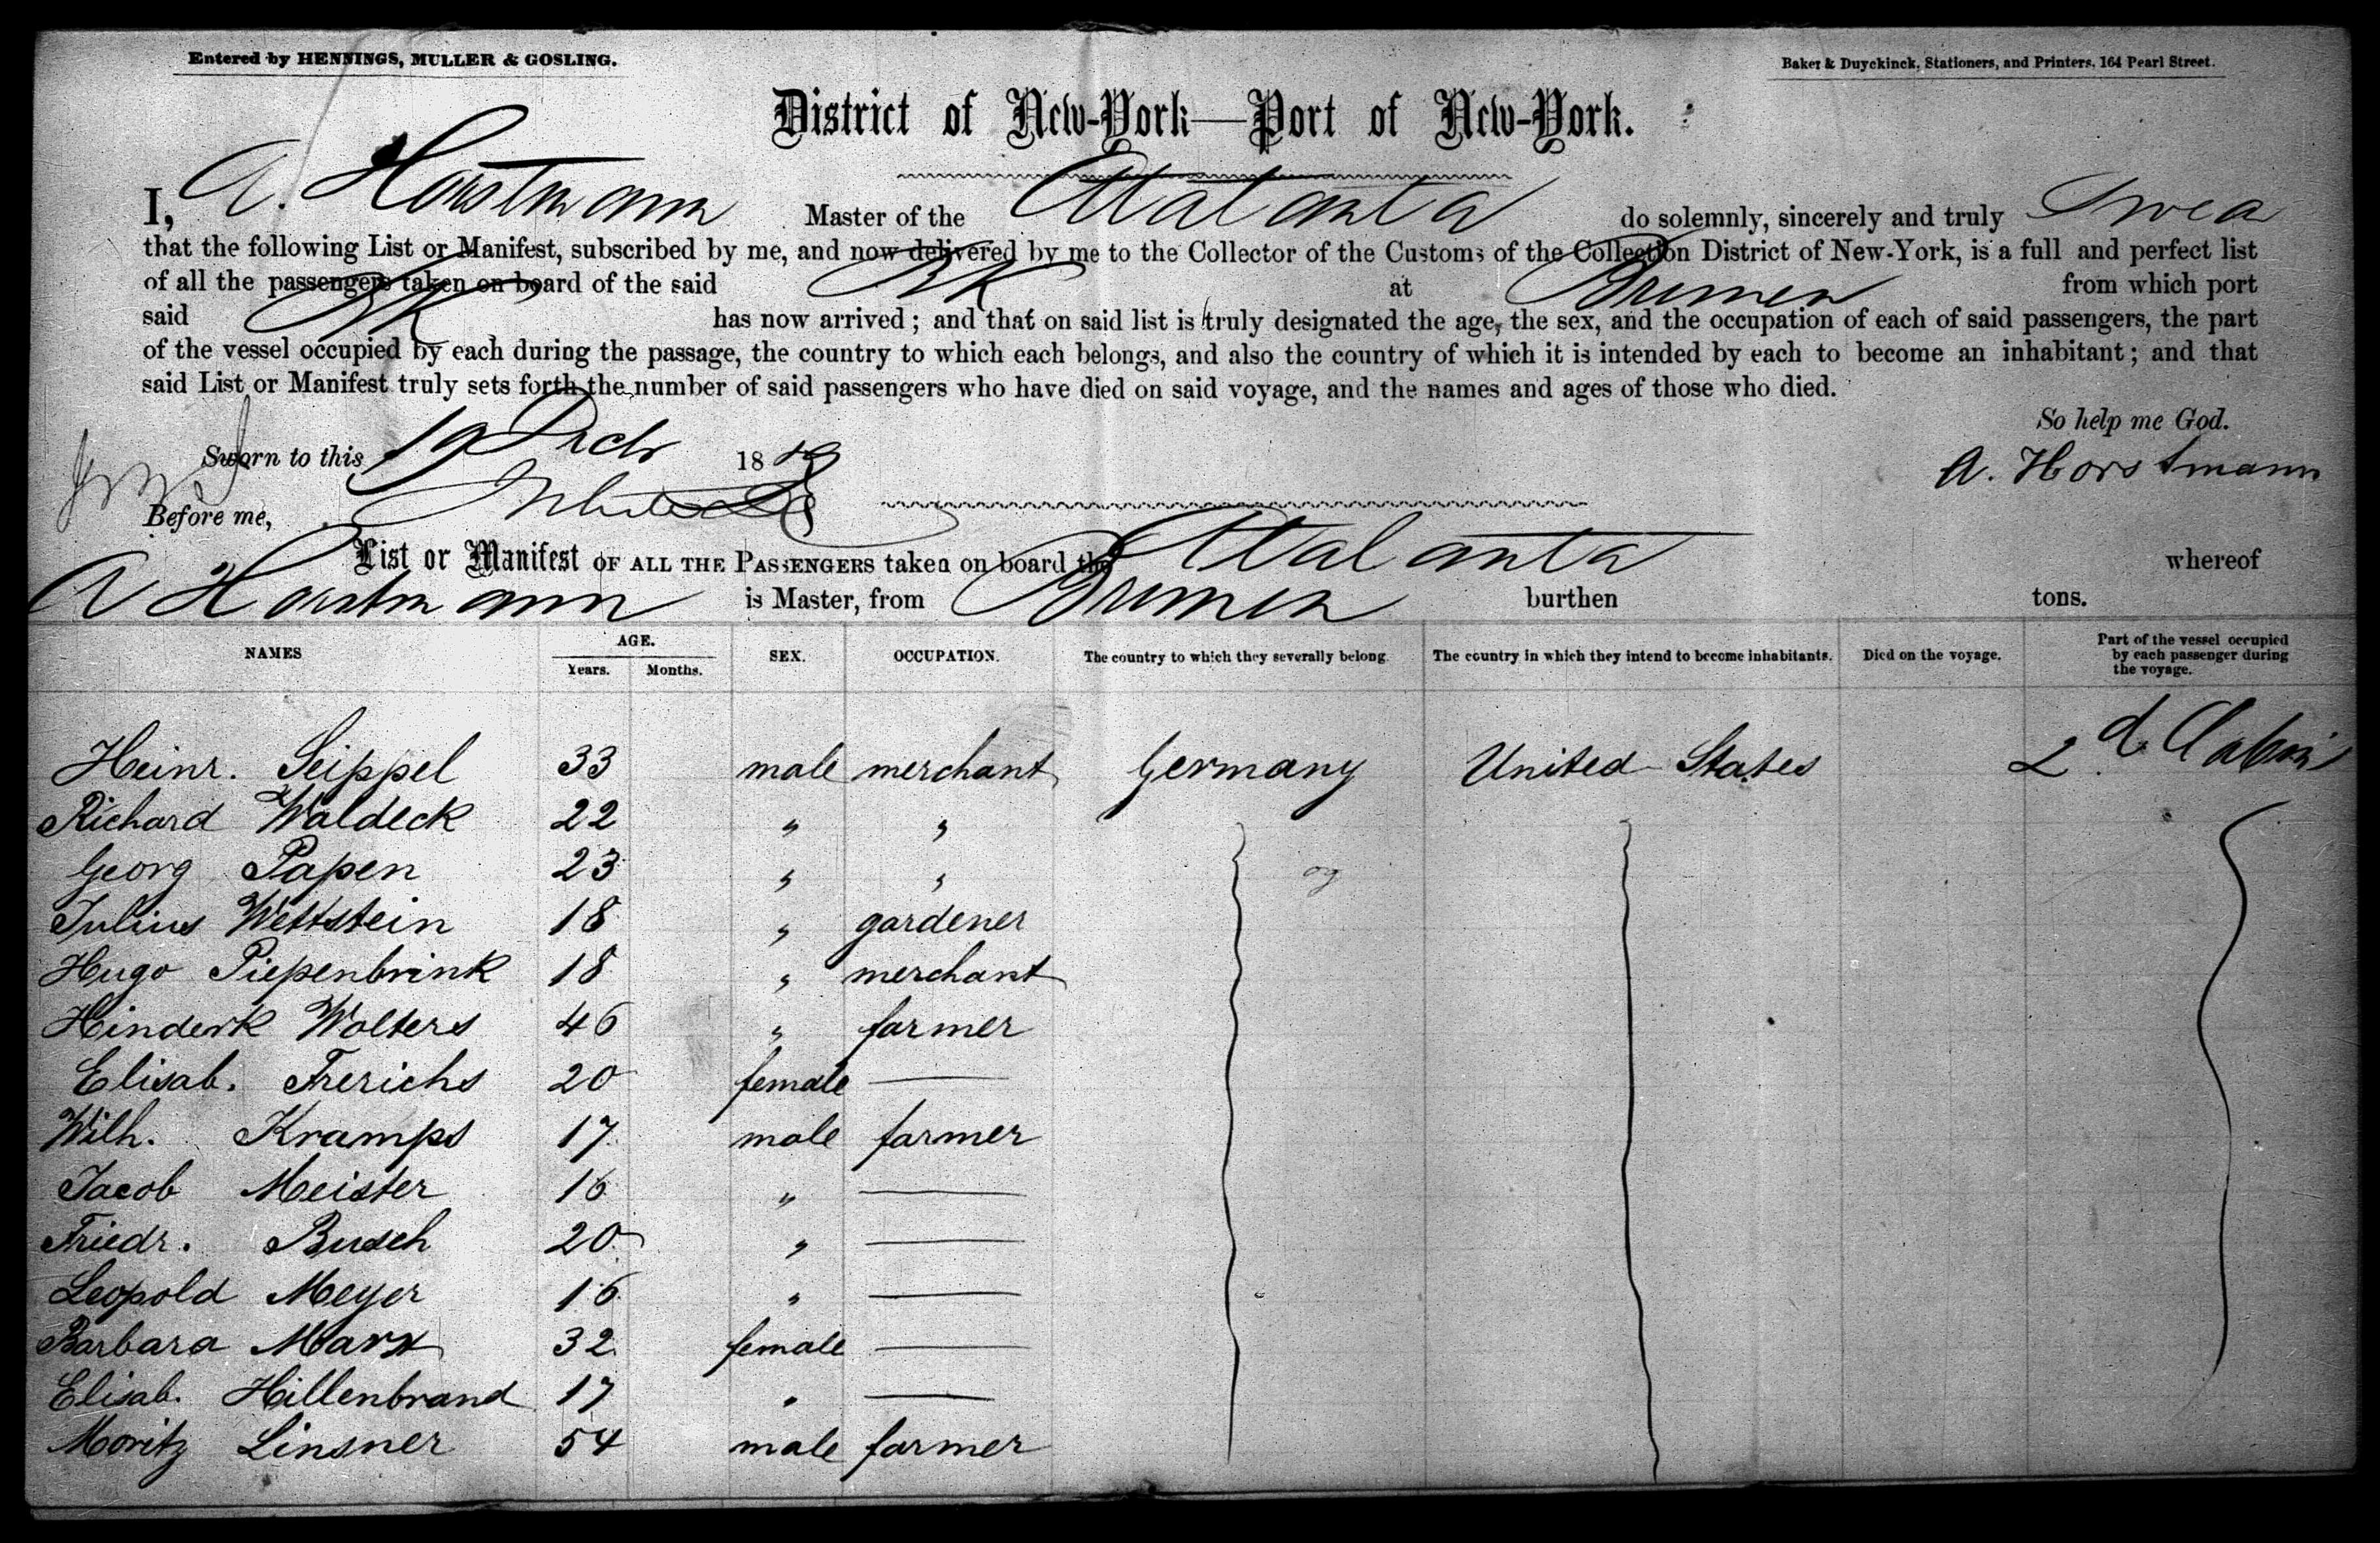 Entered by HENNINGS, MULLER & GOSLING.
Baker & Duyckinck, Stationers, and Printers, 164 Pearl Street.
District of New-York—Port of New-York.
I, A. Horstmann Master of the Atalanta do solemnly, sincerely and truly Swea
that the following List or Manifest, subscribed by me, and now delivered by me to the Collector of the Customs of the Collection District of New-York, is a full and perfect list
of all the passengers taken on board of the said Bk at Bremen from which port
said Bk has now arrived; and that on said list is truly designated the age, the sex, and the occupation of each of said passengers, the part
of the vessel occupied by each during the passage, the country to which each belongs, and also the country of which it is intended by each to become an inhabitant; and that
said List or Manifest truly sets forth the number of said passengers who have died on said voyage, and the names and ages of those who died.
So help me God.
Sworn to this 19 Decb 18
A. Horstmann
Before me,
List or Manifest OF ALL THE PASSENGERS taken on board the Atalanta whereof
A Horstmann is Master, from Bremen burthen tons.
NAMES AGE. Years. Months. SEX. OCCUPATION. The country to which they severally belong. The country in which they intend to become inhabitants. Died on the voyage. Part of the vessel occupied by each passenger during the voyage.
Heinr. Seippel 33 male merchant Germany United States 2d Cabin
Richard Waldeck 22 " "
Georg Papen 23 " "
Julius Wettstein 18 " gardener
Hugo Piepenbrink 18 " merchant
Hinderk Wolters 46 " farmer
Elisab. Frerichs 20 female —
Wilh. Kramps 17 male farmer
Jacob Meister 16 " —
Friedr. Busch 20 " —
Leopold Meyer 16 " —
Barbara Marx 32 female —
Elisab. Hillenbrand 17 " —
Moritz Linsner 54 male farmer